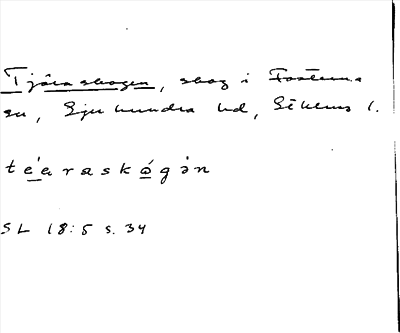 Tjäraskogen, skog i Fasterna
sn, Sjuhundra hd, Sthlms l.
téaraskógən
SL 18:5 s. 34